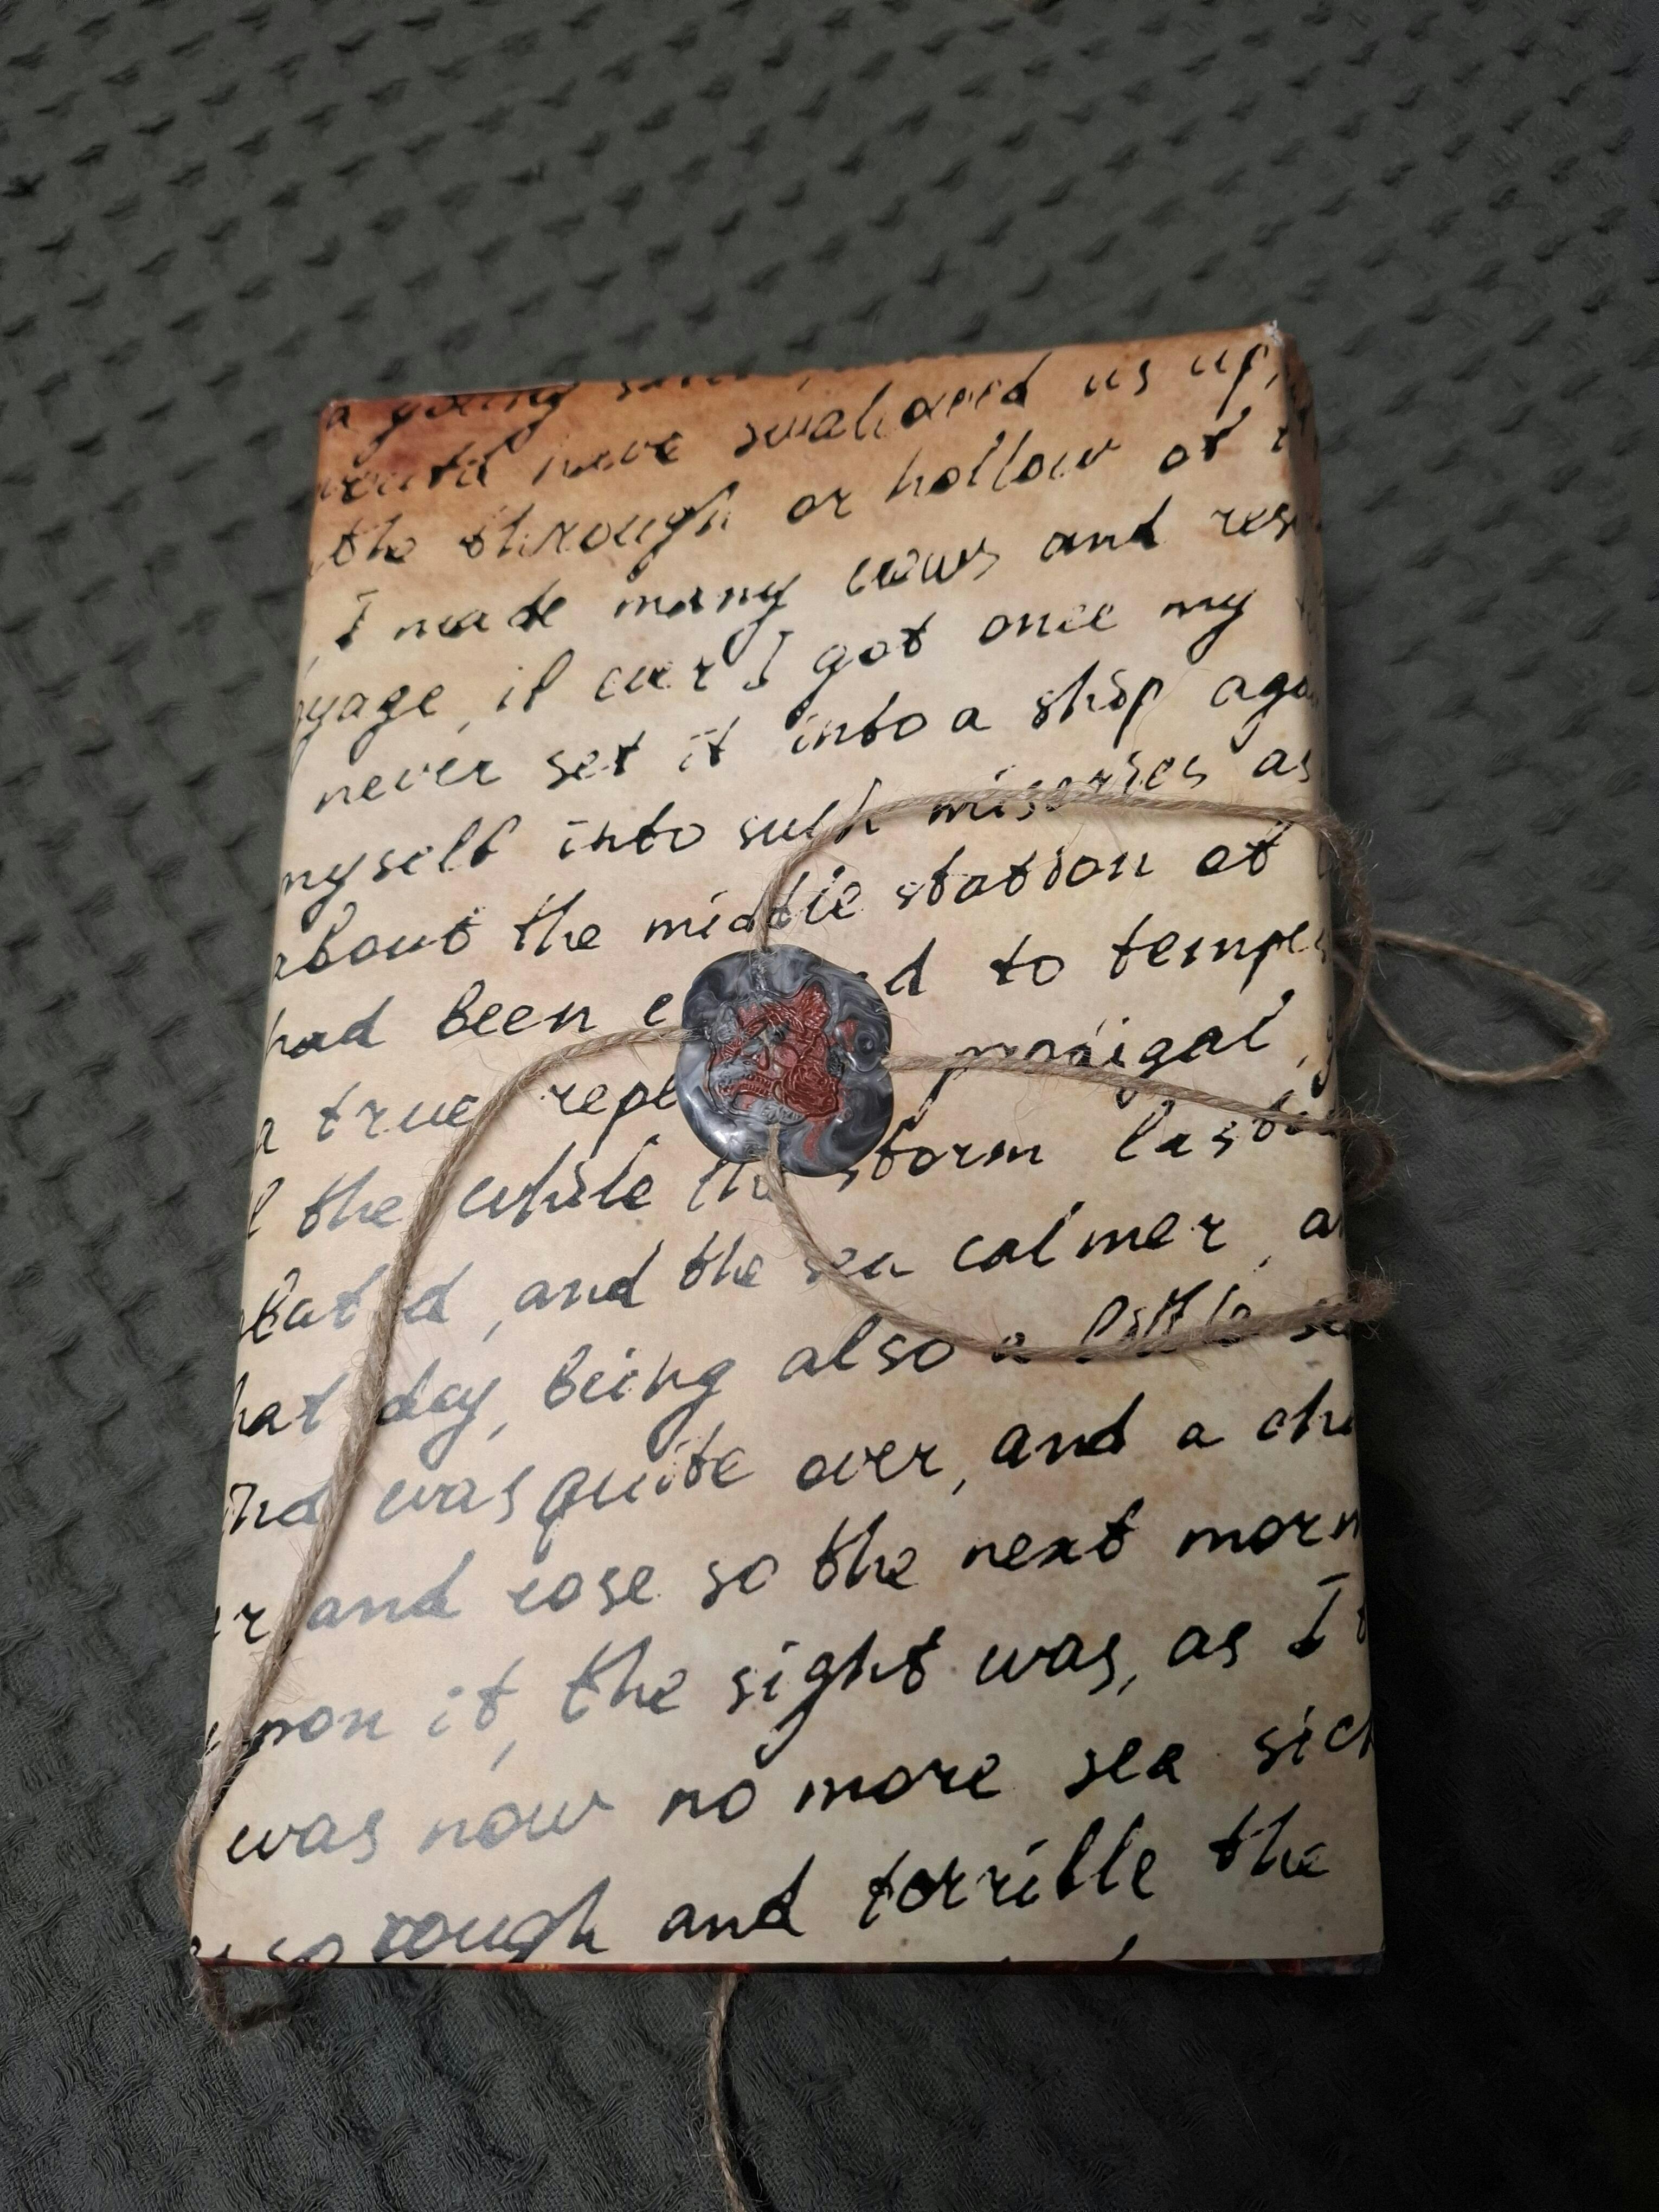 a young
have swallowed us up,
the through or hollow of
I made many vows and res
oyage, if ever I got once my
never set it into a ship aga
myself into such miseries as
about the middle station of
had been e d to tempes
a true repe prodigal,
l the while the storm lasted
bat d, and the sea calmer, a
hat day, being also a little se
ind was quite over, and a cha
er and rose so the next morn
upon it, the sight was, as I t
was now no more sea sick
so rough and torrible the